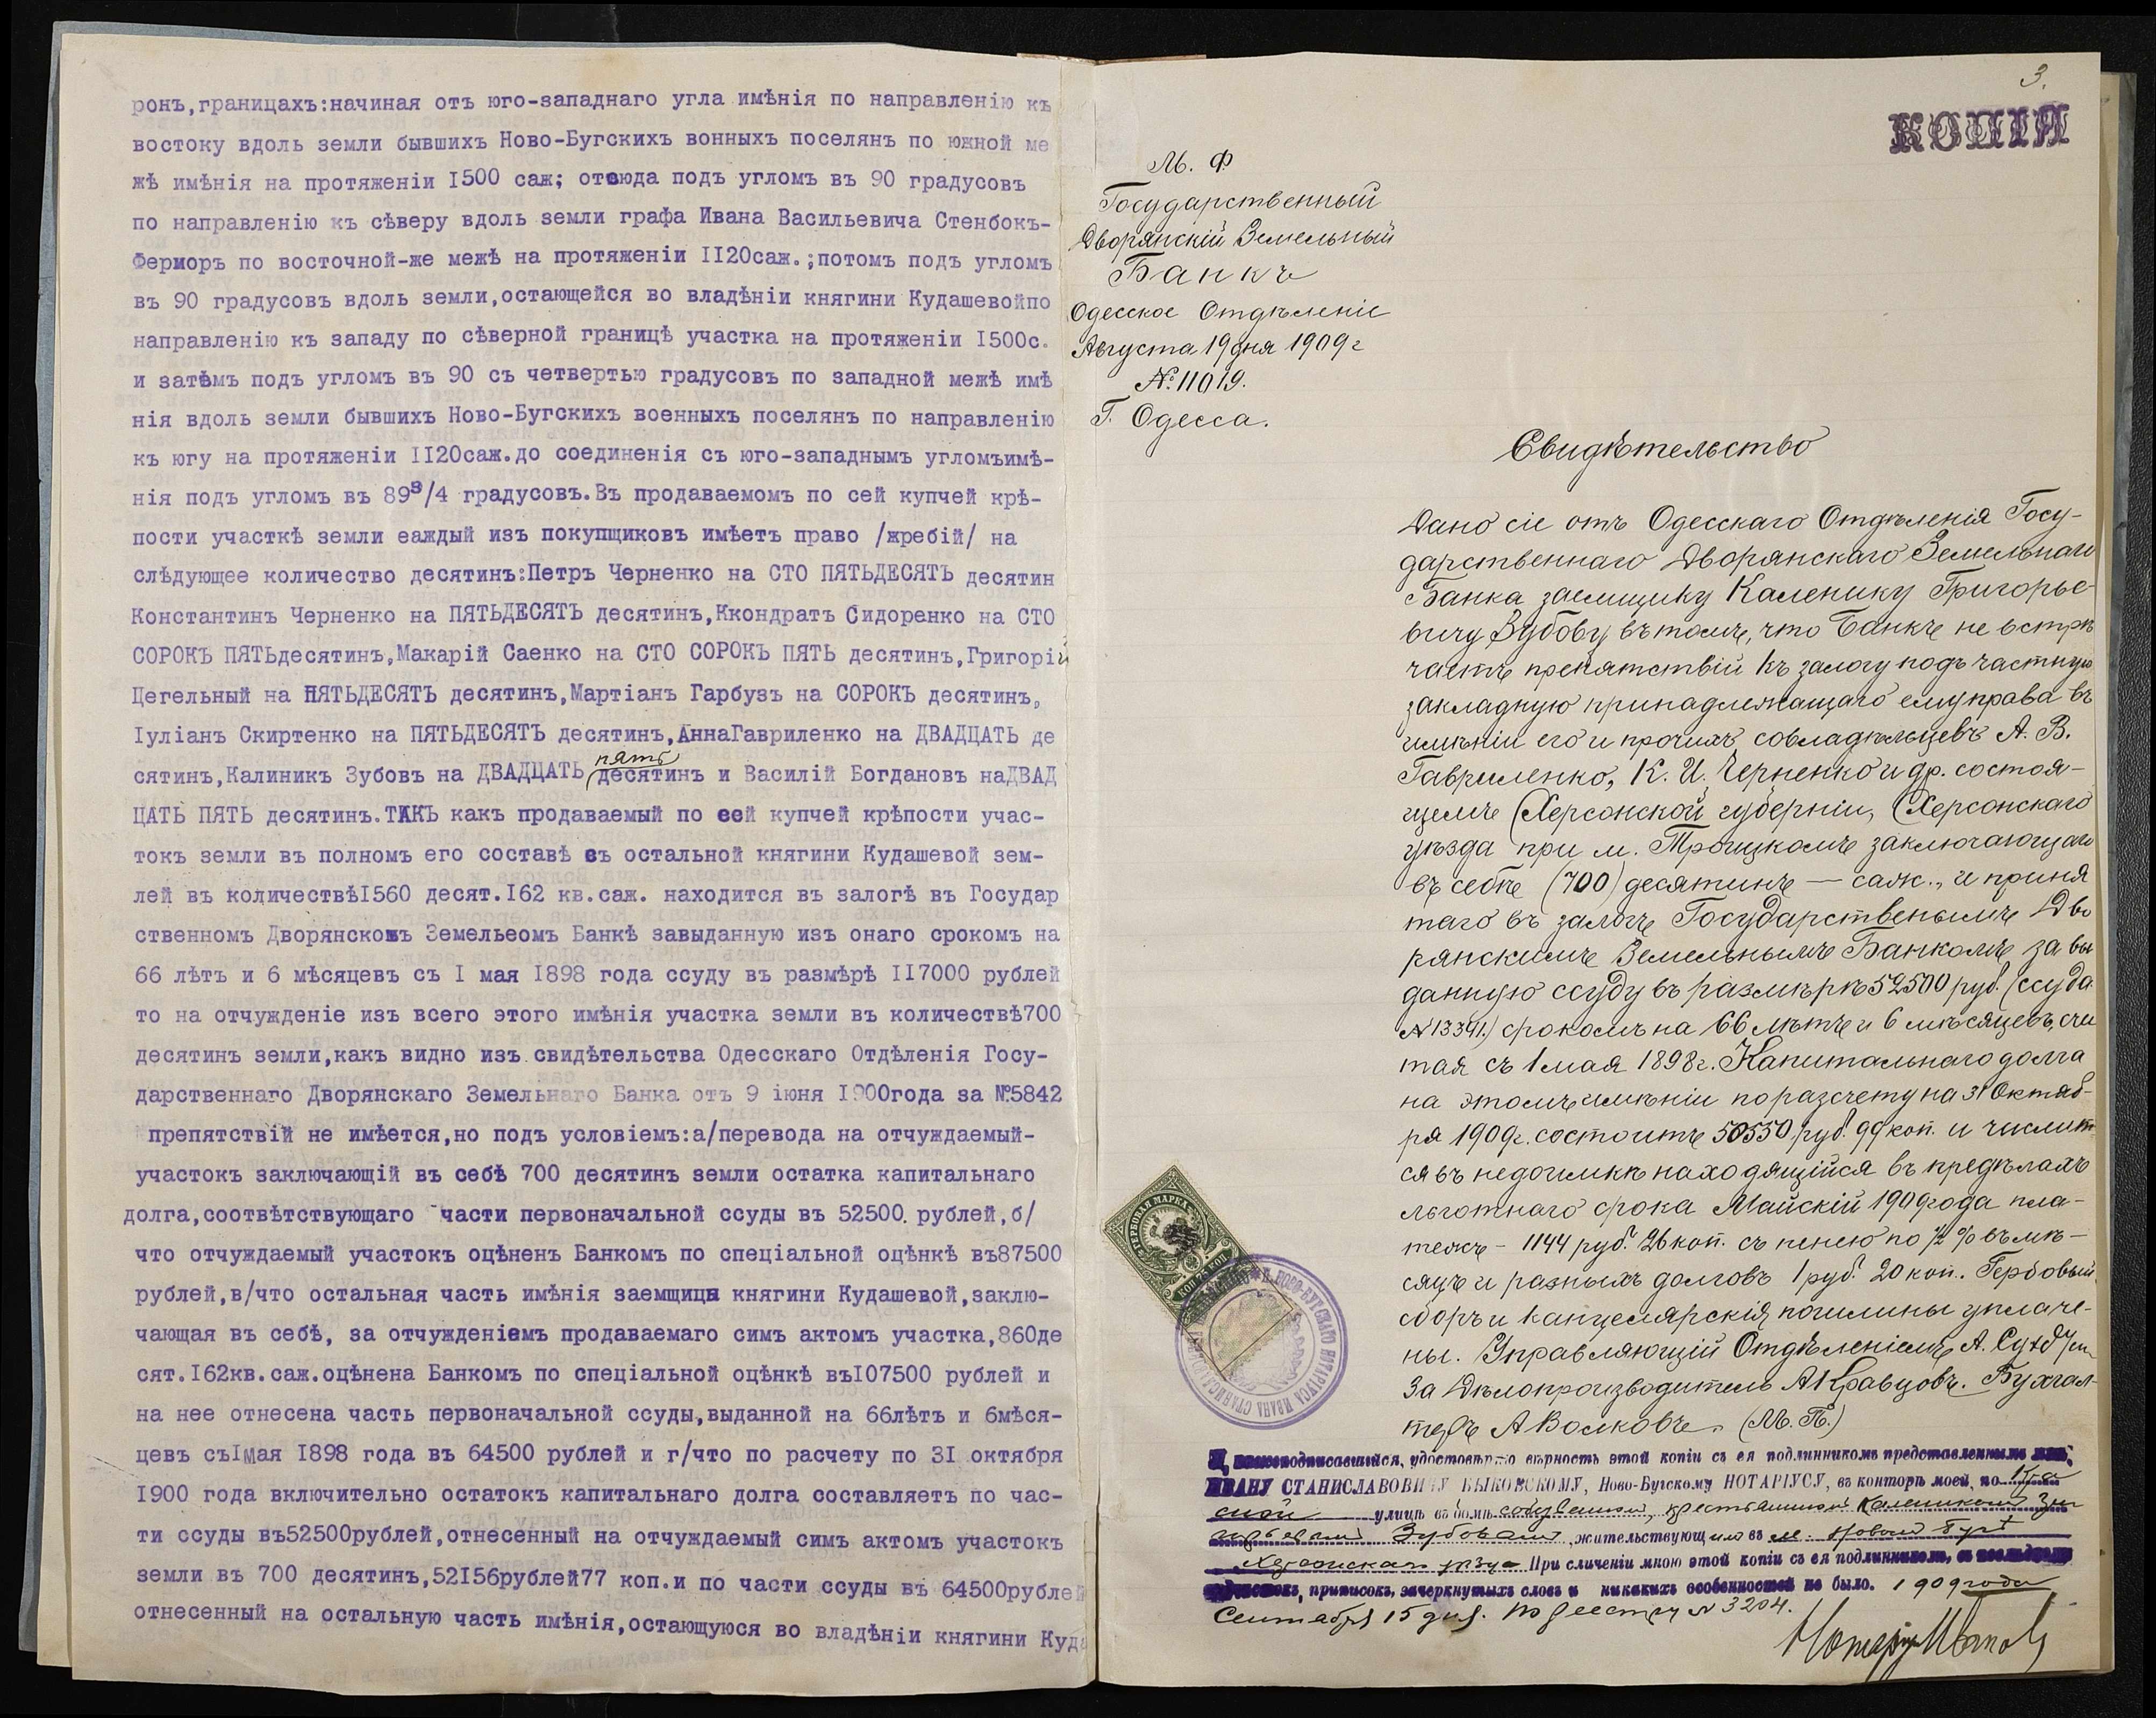 ронъ,границахъ:начиная отъ юго-западнаго угла имѣнія по направленію къ
востоку вдоль земли бывшихъ Ново-Бугскихъ вонныхъ поселянъ по южной ме
жѣ имѣнія на протяженіи I500 саж; отсюда подъ угломъ въ 90 градусовъ
по направленію къ сѣверу вдоль земли графа Ивана Васильевича Стенбокъ-
Ферморъ по восточной-же межѣ на протяженіи II20саж.;потомъ подъ угломъ
въ 90 градусовъ вдоль земли,остающейся во владѣніи княгини Кудашевойпо
направленію къ западу по сѣверной границѣ участка на протяженіи I500с.
и затѣмъ подъ угломъ въ 90 съ четвертью градусовъ по западной межѣ имѣ
нія вдоль земли бывшихъ Ново-Бугскихъ военныхъ поселянъ по направленію
къ югу на протяженіи II20саж.до соединенія съ юго-западнымъ угломъимѣ-
нія подъ угломъ въ 89³/4 градусовъ.Въ продаваемомъ по сей купчей крѣ-
пости участкѣ земли еаждый изъ покупщиковъ имѣетъ право /жребій/ на
слѣдующее количество десятинъ:Петръ Черненко на СТО ПЯТЬДЕСЯТЬ десятин
Константинъ Черненко на ПЯТЬДЕСЯТЬ десятинъ,Ккондратъ Сидоренко на СТО
СОРОКЪ ПЯТЬдесятинъ,Макарій Саенко на СТО СОРОКЪ ПЯТЬ десятинъ,Григорій
Цегельный на ПЯТЬДЕСЯТЬ десятинъ,Мартіанъ Гарбузъ на СОРОКЪ десятинъ,
Іуліанъ Скиртенко на ПЯТЬДЕСЯТЪ десятинъ,АннаГавриленко на ДВАДЦАТЬ де
пять
сятинъ,Калиникъ Зубовъ на ДВАДЦАТЬ десятинъ и Василій Богдановъ наДВАД
ЦАТЬ ПЯТЬ десятинъ.ТАКЪ какъ продаваемый по сей купчей крѣпости учас-
токъ земли въ полномъ его составѣ съ остальной княгини Кудашевой зем-
лей въ количествѣI560 десят.I62 кв.саж. находится въ залогѣ въ Государ
ственномъ Дворянскомъ Земельеомъ Банкѣ завыданную изъ онаго срокомъ на
66 лѣтъ и 6 мѣсяцевъ съ I мая I898 года ссуду въ размѣрѣ II7000 рублей
то на отчужденіе изъ всего этого имѣнія участка земли въ количествѣ700
десятинъ земли,какъ видно изъ свидѣтельства Одесскаго Отдѣленія Госу-
дарственнаго Дворянскаго Земельнаго Банка отъ 9 іюня I900года за №5842
препятствій не имѣется,но подъ условіемъ:а/перевода на отчуждаемый-
участокъ заключающій въ себѣ 700 десятинъ земли остатка капитальнаго
долга,соотвѣтствующаго части первоначальной ссуды въ 52500 рублей,б/
что отчуждаемый участокъ оцѣненъ Банкомъ по спеціальной оцѣнкѣ въ87500
рублей,в/что остальная часть имѣнія заемщицы княгини Кудашевой,заклю-
чающая въ себѣ, за отчужденіемъ продаваемаго симъ актомъ участка,860де
сят.I62кв.саж.оцѣнена Банкомъ по спеціальной оцѣнкѣ въI07500 рублей и
на нее отнесена часть первоначальной ссуды,выданной на 66лѣтъ и 6мѣся-
цевъ съIмая I898 года въ 64500 рублей и г/что по расчету по 3I октября
I900 года включительно остатокъ капитальнаго долга составляетъ по час-
ти ссуды въ52500рублей,отнесенный на отчуждаемый симъ актомъ участокъ
земли въ 700 десятинъ,52I56рублей77 коп.и по части ссуды въ 64500рублей
отнесенный на остальную часть имѣнія,остающуюся во владѣніи княгини Куда
3.
КОПІЯ
М. Ф.
Государственный
Дворянскій Земельный
Банкъ
Одесское Отдѣленіе
Августа 19 дня 1909 г
№ 11019.
Г. Одесса.
Свидѣтельство
Дано сіе отъ Одесскаго Отдѣленія Госу-
дарственнаго Дворянскаго Земельнаго
Банка заемщику Каленику Григорье-
вичу Зубову въ томъ, что Банкъ не встрѣ
чаетъ препятствій къ залогу подъ частную
закладную принадлежащаго ему права въ
имѣніи его и прочихъ совладѣльцевъ А. В.
Гавриленко, К. И. Черненко и др. состоя-
щемъ Херсонской губерніи, Херсонскаго
уѣзда при м. Троицкомъ заключающаго
въ себѣ (700) десятинъ — саж., и приня
таго въ залогъ Государственымъ Дво
рянскимъ Земельнымъ Банкомъ за вы
данную ссуду въ размѣрѣ 52500 руб. (ссуда
№ 13341.) срокомъ на 66 лѣтъ и 6 мѣсяцевъ, счи
тая съ 1 мая 1898 г. Капитальнаго долга
на этомъ имѣніи по разсчету на 31 Октяб-
ря 1909 г. состоитъ 50550 руб. 99 коп. и числит
ся въ недоимкѣ находящійся въ предѣлахъ
льготнаго срока Майскій 1909 года пла-
тежъ - 1144 руб. 26 коп. съ пенею по ½ % въ мѣ-
сяцъ и разныхъ долговъ 1 руб. 20 коп. Гербовый
сборъ и канцелярскія пошлины уплаче-
ны. Управляющій Отдѣленіемъ А.
За Дѣлопроизводитель А Кравцовъ. Бухгал-
теръ А Волковъ. (М. П.)
ГЕРБОВАЯ МАРКА
75 КОП
удостовѣряю вѣрность этой копіи съ ея подлинникомъ представленнымъ мнѣ,
ИВАНУ СТАНИСЛАВОВИЧУ БЫКОВСКОМУ, Ново-Бугскому НОТАРІУСУ, въ конторѣ моей, по
ской улицѣ въ домѣ собственномъ, крестьяниномъ Каленикомъ
Зубовымъ, жительствующимъ въ м. Новомъ Бугѣ
Херсонскаго уѣзда При сличеніи мною этой копіи съ ея подлинникомъ, въ послѣднемъ
подчистокъ, приписокъ, зачеркнутыхъ словъ и никакихъ особенностей не было. 1909 года
Сентября 15 дня. По реестру № 3204.